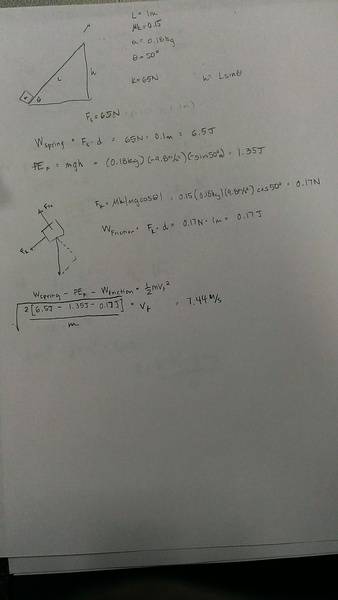 L = 1m
μk = 0.15
m = 0.18kg
θ = 50°
k = 65N h = Lsinθ
L h
θ
Fs = 65N
Wspring = Fs · d = 65N · 0.1m = 6.5J
PEf = mgh = (0.18kg)(-9.8m/s²)(-sin50°) = 1.35J
Fk = μk|mgcosθ| = 0.15(0.18kg)(9.8m/s²)cos50° = 0.17N
Wfriction = Fk · d = 0.17N · 1m = 0.17J
Fk
Wspring - PEf - Wfriction = ½mvf²
√(2[6.5J - 1.35J - 0.17J] / m) = Vf = 7.44m/s